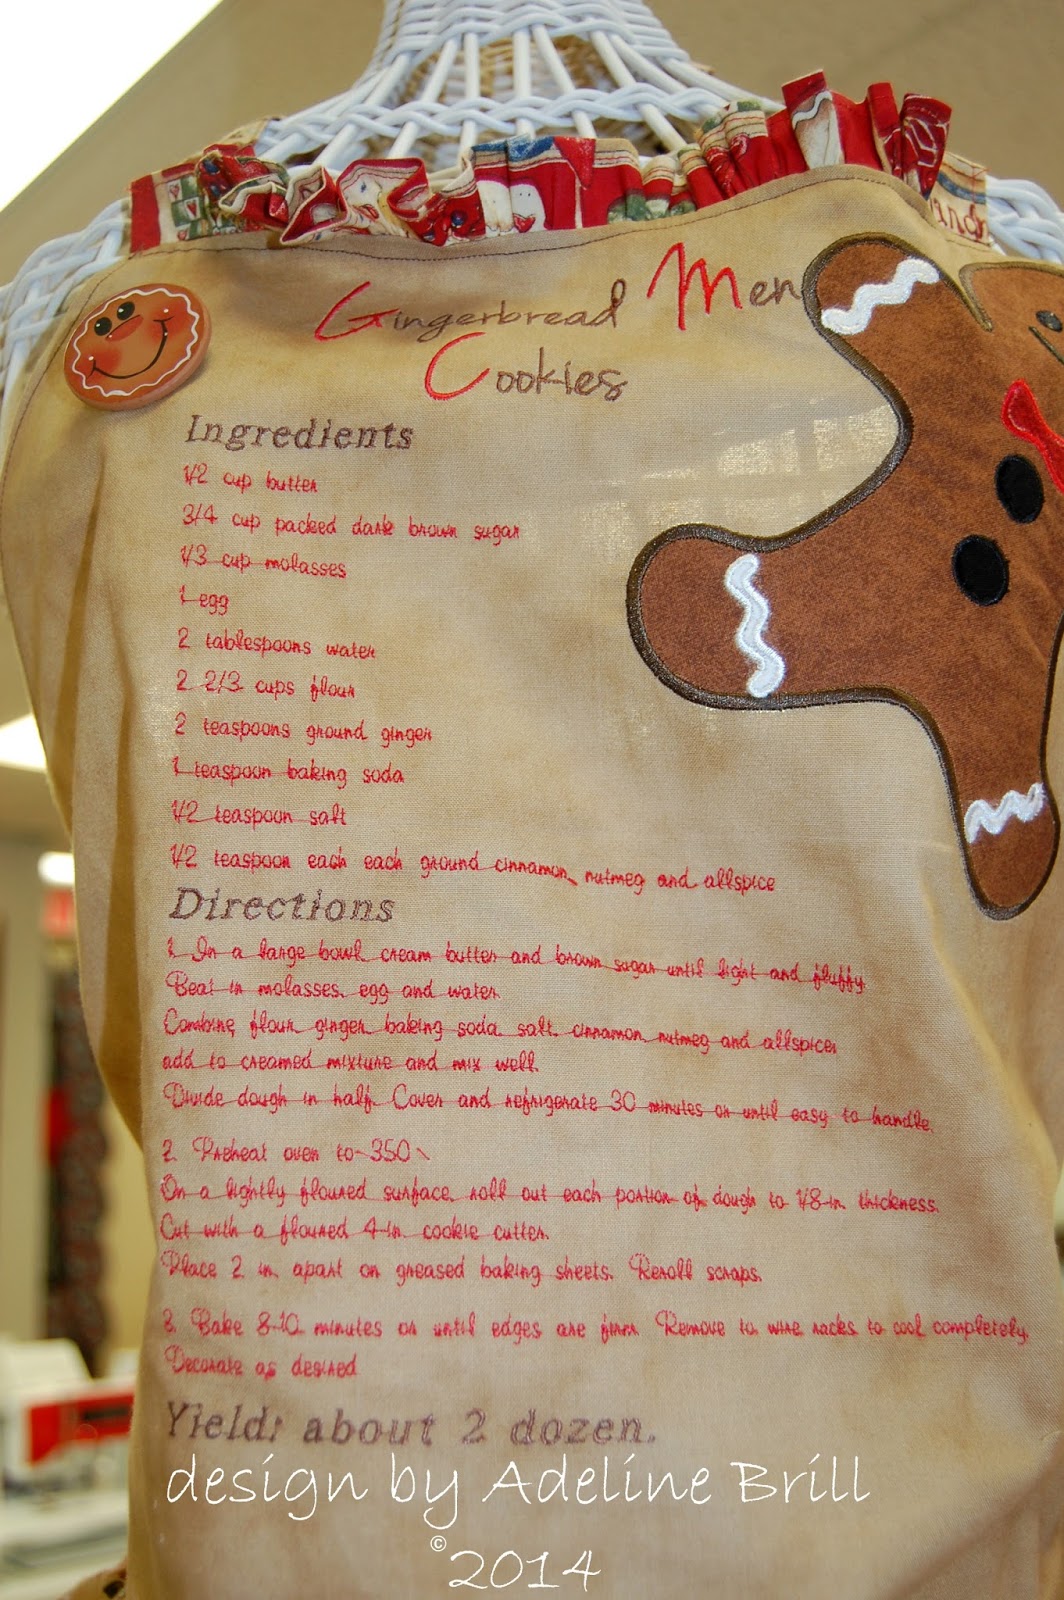 Gingerbread Men
Cookies
Ingredients
1/2 cup butter
3/4 cup packed dark brown sugar
1/3 cup molasses
1 egg
2 tablespoons water
2 2/3 cups flour
2 teaspoons ground ginger
1 teaspoon baking soda
1/2 teaspoon salt
1/2 teaspoon each each ground cinnamon, nutmeg and allspice
Directions
1. In a large bowl, cream butter and brown sugar until light and fluffy.
Beat in molasses, egg and water.
Combine, flour, ginger, baking soda, salt, cinnamon, nutmeg and allspice;
add to creamed mixture and mix well.
Divide dough in half. Cover and refrigerate 30 minutes or until easy to handle.
2. Preheat oven to 350
On a lightly floured surface, roll out each portion of dough to 1/8-in. thickness.
Cut with a floured 4-in. cookie cutter.
Place 2 in. apart on greased baking sheets. Reroll scraps.
3. Bake 8-10 minutes or until edges are firm. Remove to wire racks to cool completely.
Decorate as desired
Yield: about 2 dozen.
design by Adeline Brill
© 2014